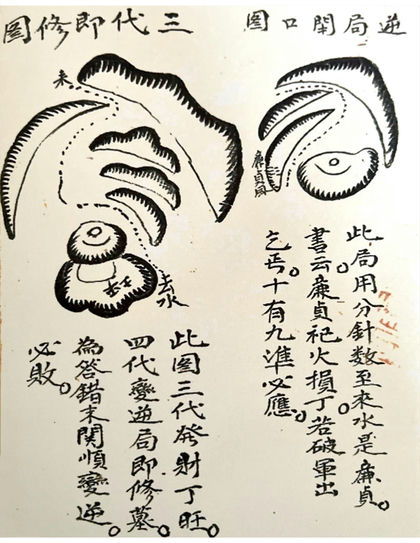 逆局閉口图
廉貞
此局用分針数至来水是廉貞。
書云。廉貞祀火損丁。若破軍出
乞丐。十有九準必應。
三代即修图
来
去水
此图三代發財丁旺。
四代變逆局即修墓。
為答錯末関順變逆。
必敗。